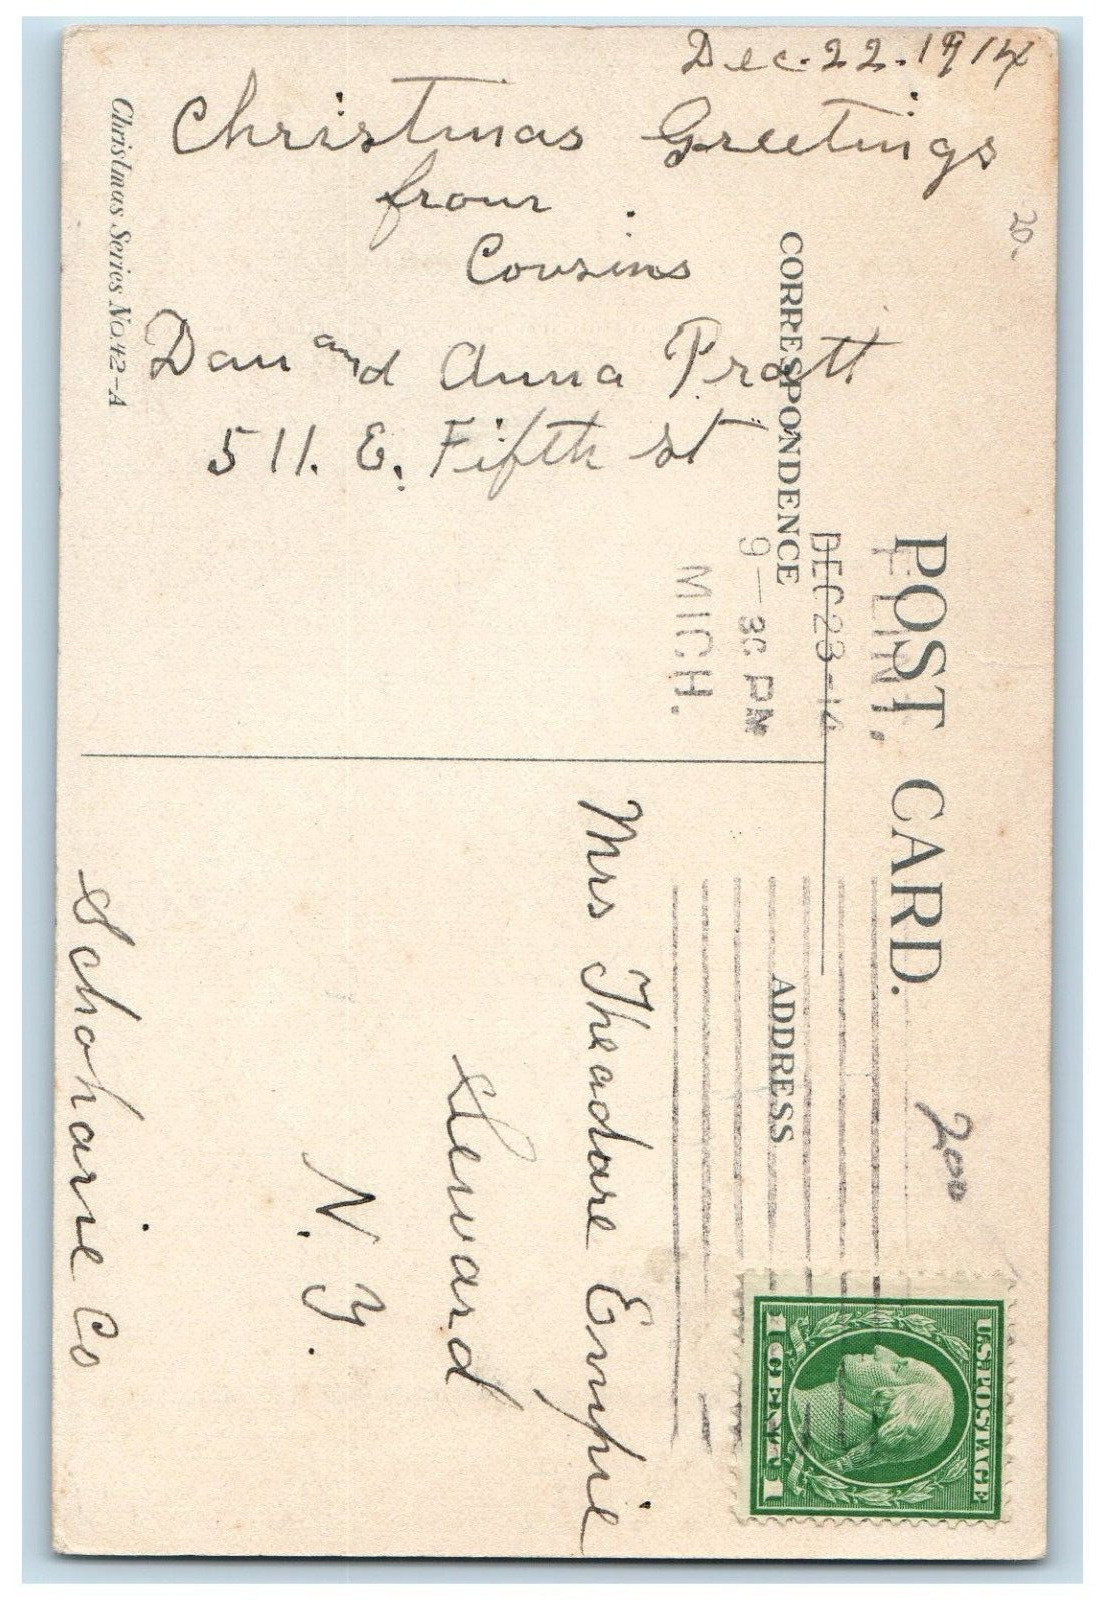 Dec. 22. 1914
Christmas Greetings
from
Cousins
Dan and Anna Pratt
511. E. Fifth st
Christmas Series No. 42-A
20.
POST CARD.
CORRESPONDENCE
ADDRESS
FLINT,
DEC 23-14
9-30 PM
MICH.
200
U.S. POSTAGE
1 CENT 1
Mrs Theadore Empie
Seward
N. Y.
Schoharie Co